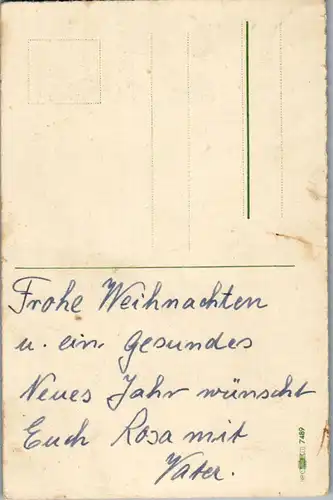 Frohe Weihnachten
u. ein gesundes
Neues Jahr wünscht
Euch Rosa mit
Vater.
7489